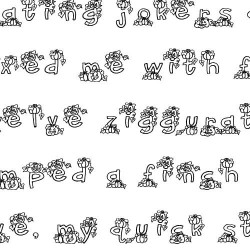 ating jokers
xed me with f
elve ziggurat
mped a finch
e. my duck s